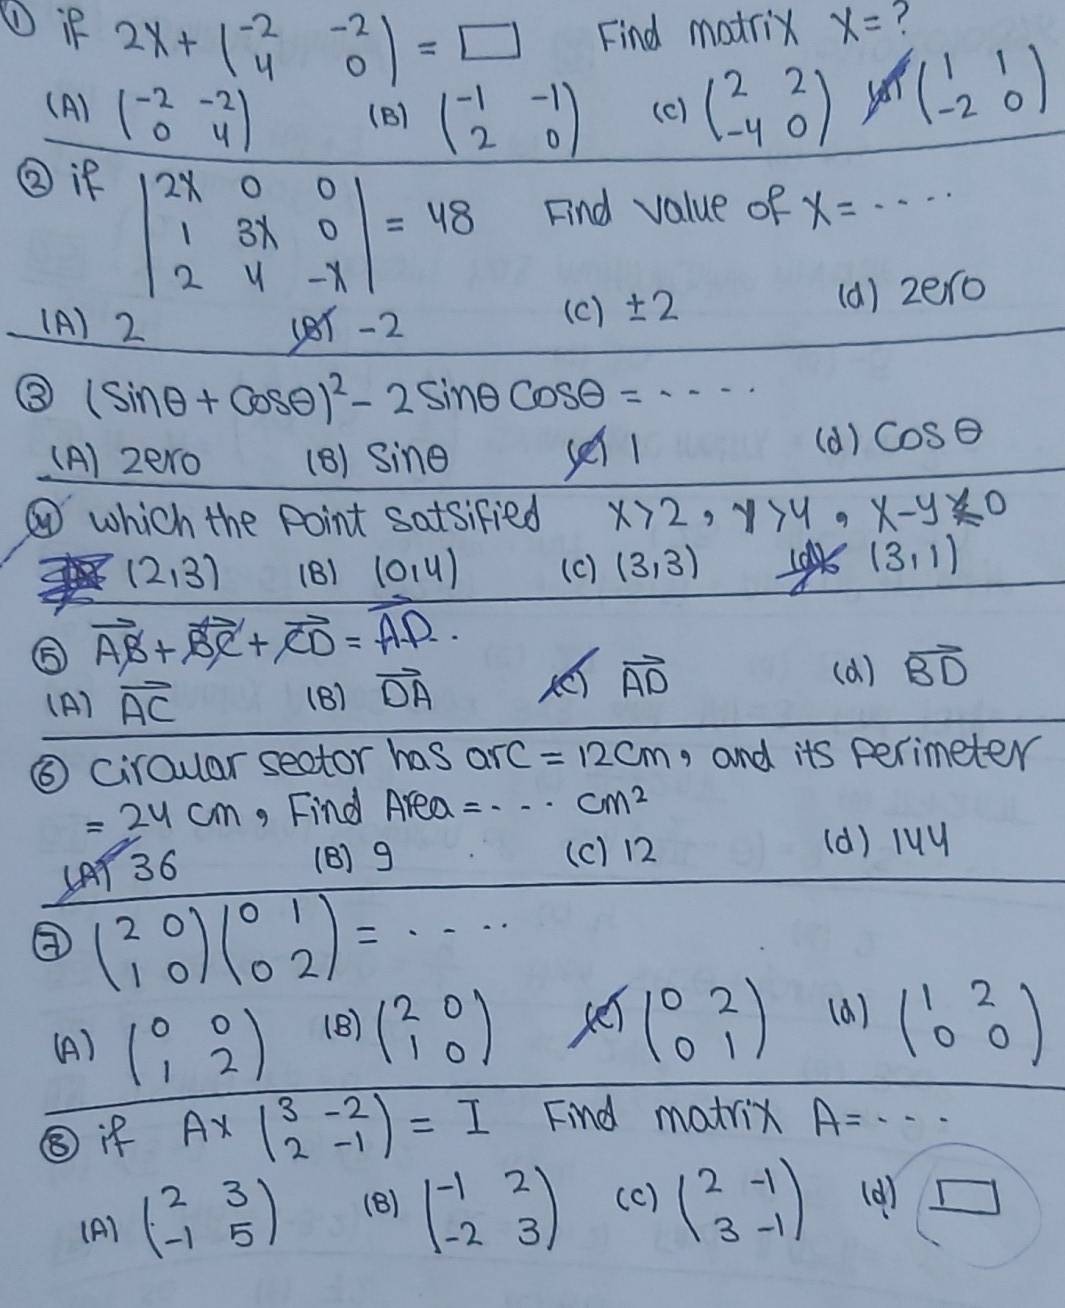 ① if 2X + (-2 -2 = □ Find matrix X = ?
4 0)
(A) (-2 -2 (B) (-1 -1 (C) (2 2 (d) (1 1
0 4) 2 0) -4 0) -2 0)
② if |2X 0 0|
|1 3X 0| = 48 Find value of X = ....
|2 4 -X|
(A) 2 (B) -2 (C) ±2 (d) zero
③ (Sinθ + Cosθ)² - 2 Sinθ Cosθ = .....
(A) zero (B) Sinθ (C) 1 (d) Cosθ
④ which the Point Satsified X>2, y>4, X-y 0
(2,3) (B) (0,4) (C) (3,3) (d) (3,1)
⑤ AB + BC + CD = AD.
(A) AC (B) DA (C) AD (d) BD
⑥ Circular sector has arc = 12 cm, and its Perimeter
= 24 cm, Find Area = .... cm²
(A) 36 (B) 9 (C) 12 (d) 144
⑦ (2 0 (0 1 = .....
1 0) 0 2)
(A) (0 0 (B) (2 0 (C) (0 2 (d) (1 2
1 2) 1 0) 0 1) 0 0)
⑧ if A× (3 -2 = I Find matrix A = ....
2 -1)
(A) (2 3 (B) (-1 2 (C) (2 -1 (d) □
-1 5) -2 3) 3 -1)